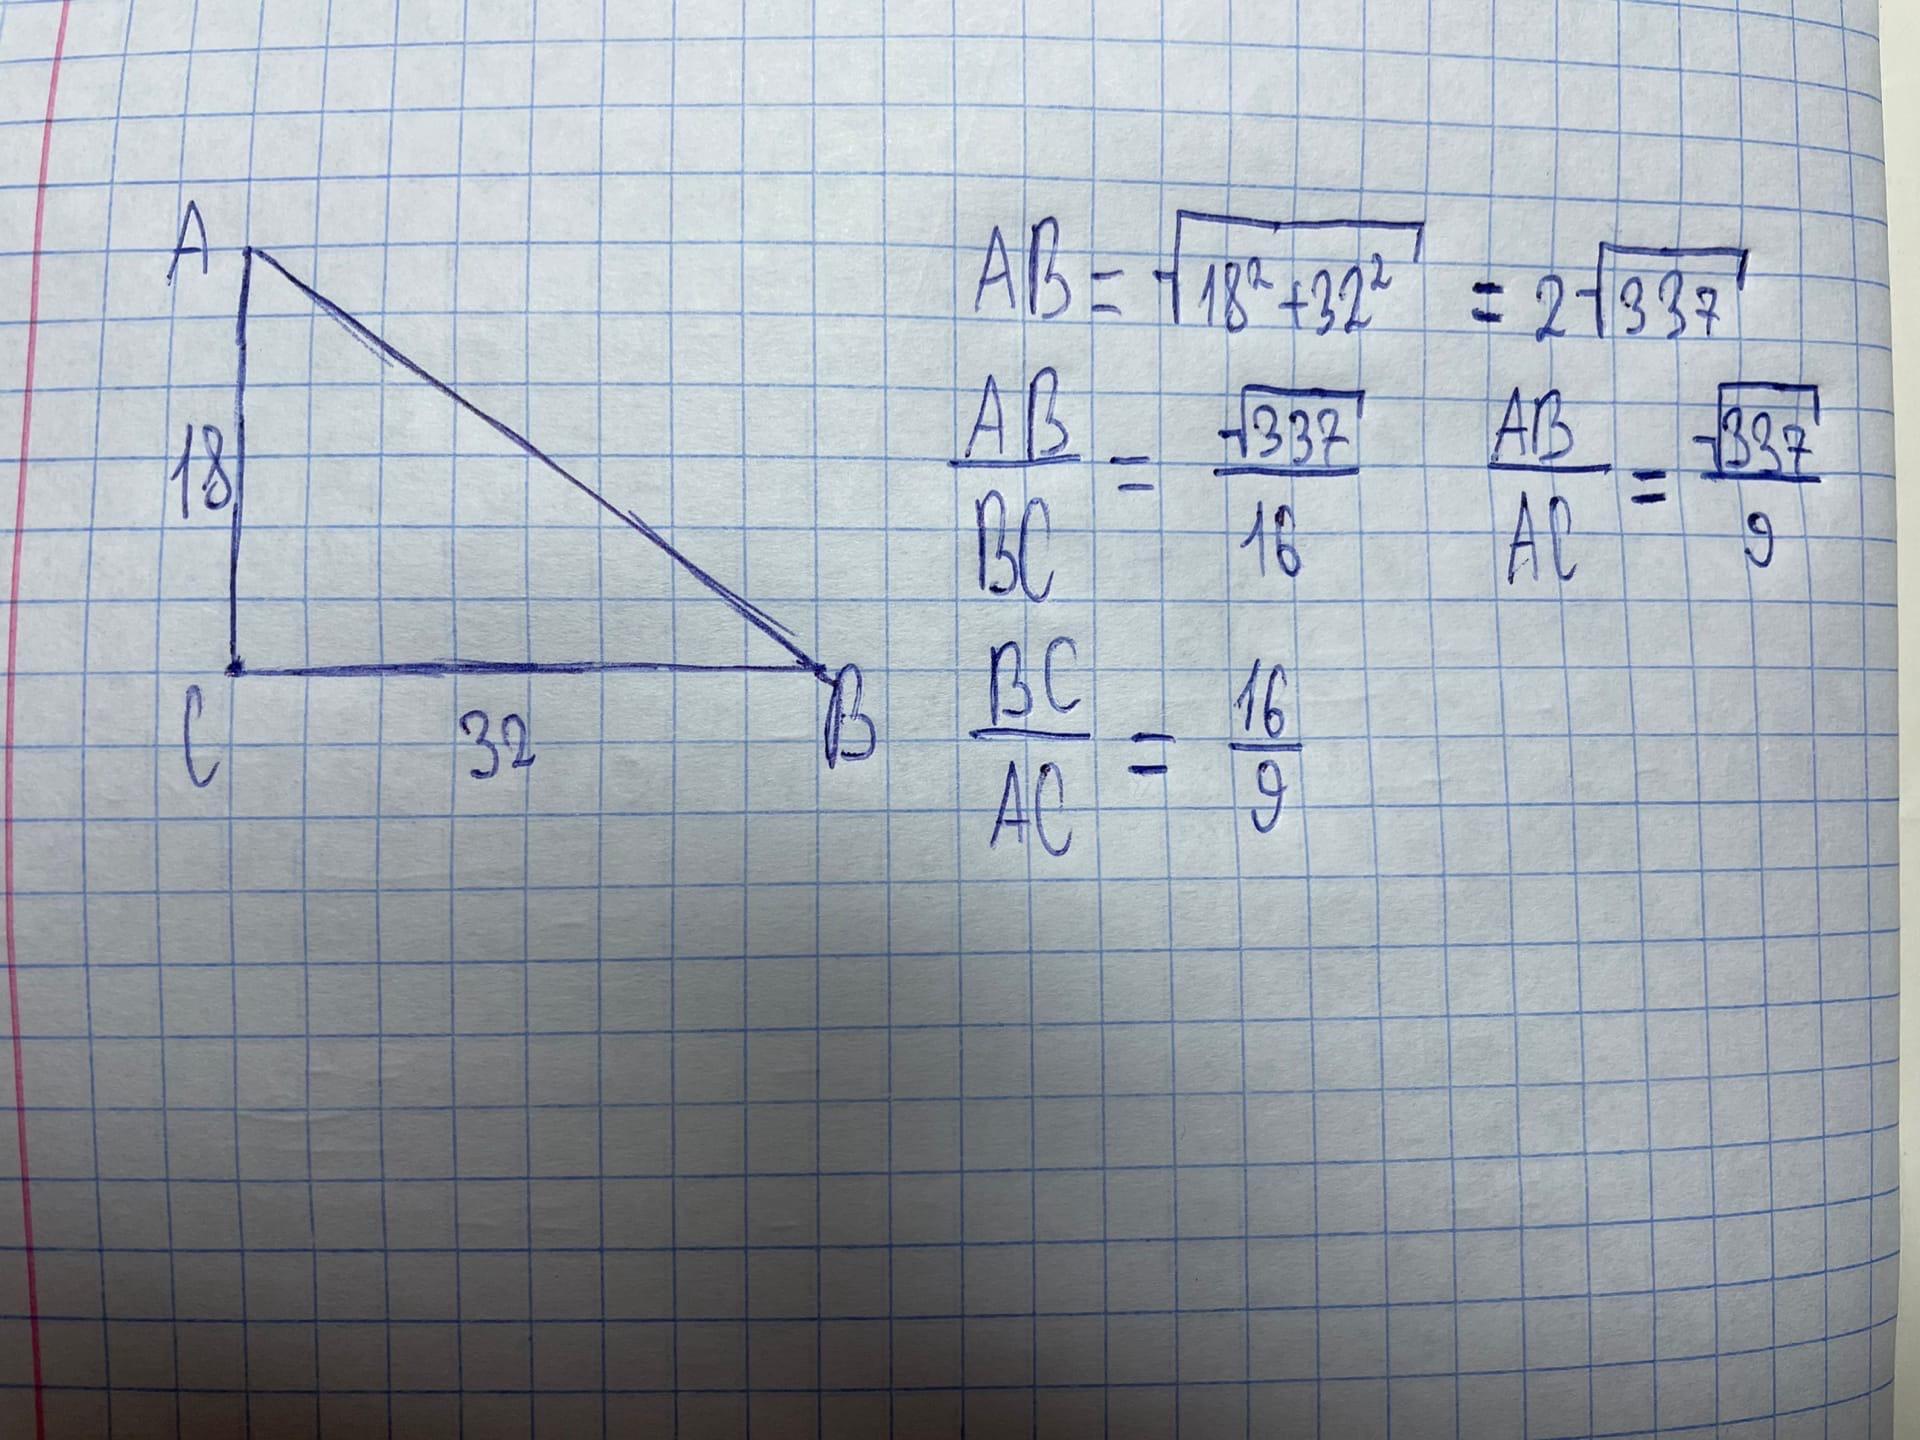 A
18
C
32
B
AB = √(18² + 32²) = 2√337
AB/BC = √337/16 AB/AC = √337/9
BC/AC = 16/9